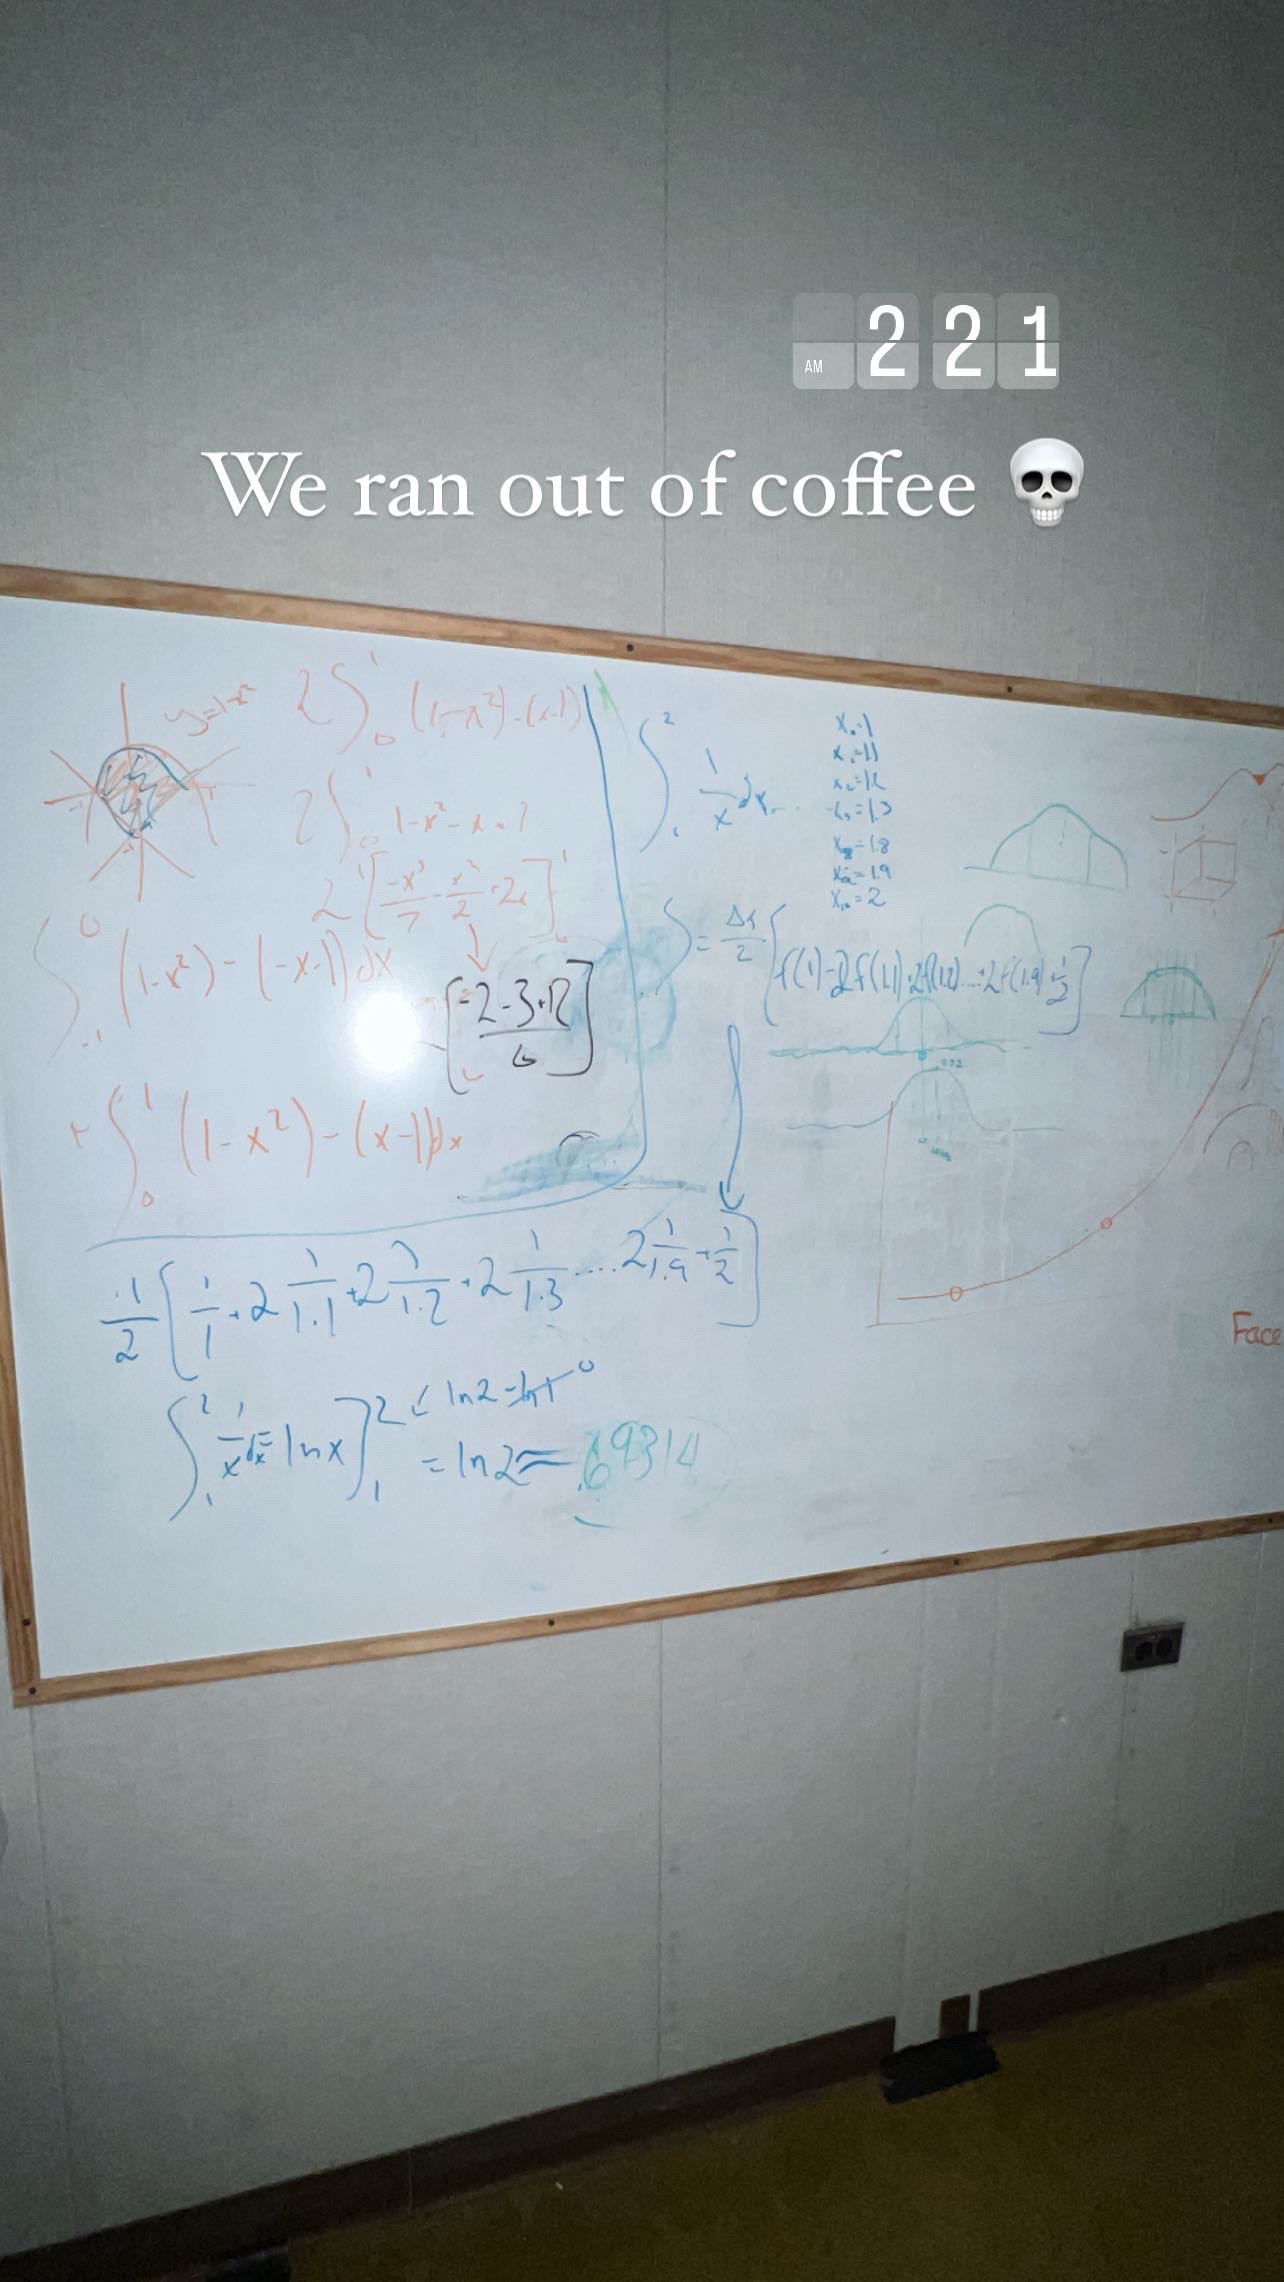 AM 2 21
We ran out of coffee 💀
y=1-x²
2∫₀¹ (1-x²)-(x-1)
2∫₀¹ 1-x²-x+1
2[-x³/3 - x²/2 + 2x]¹
∫₋₁⁰ (1-x²)-(-x-1)dx
[-2-3+12/6]
+∫₀¹ (1-x²)-(x-1)dx
∫₁² 1/x dx
x₀=1
x₁=1.1
x₂=1.2
x₃=1.3
x₈=1.8
x₉=1.9
x₁₀=2
∫ = Δx/2 [f(1)+2f(1.1)+2f(1.2)....+2f(1.9)+1/2]
.1/2 [1/1 + 2 1/1.1 + 2 1/1.2 + 2 1/1.3 .... 2 1/1.9 + 1/2]
∫₁² 1/x dx = ln x]₁² = ln2-ln1 0
= ln2 ≈ .69314
Face